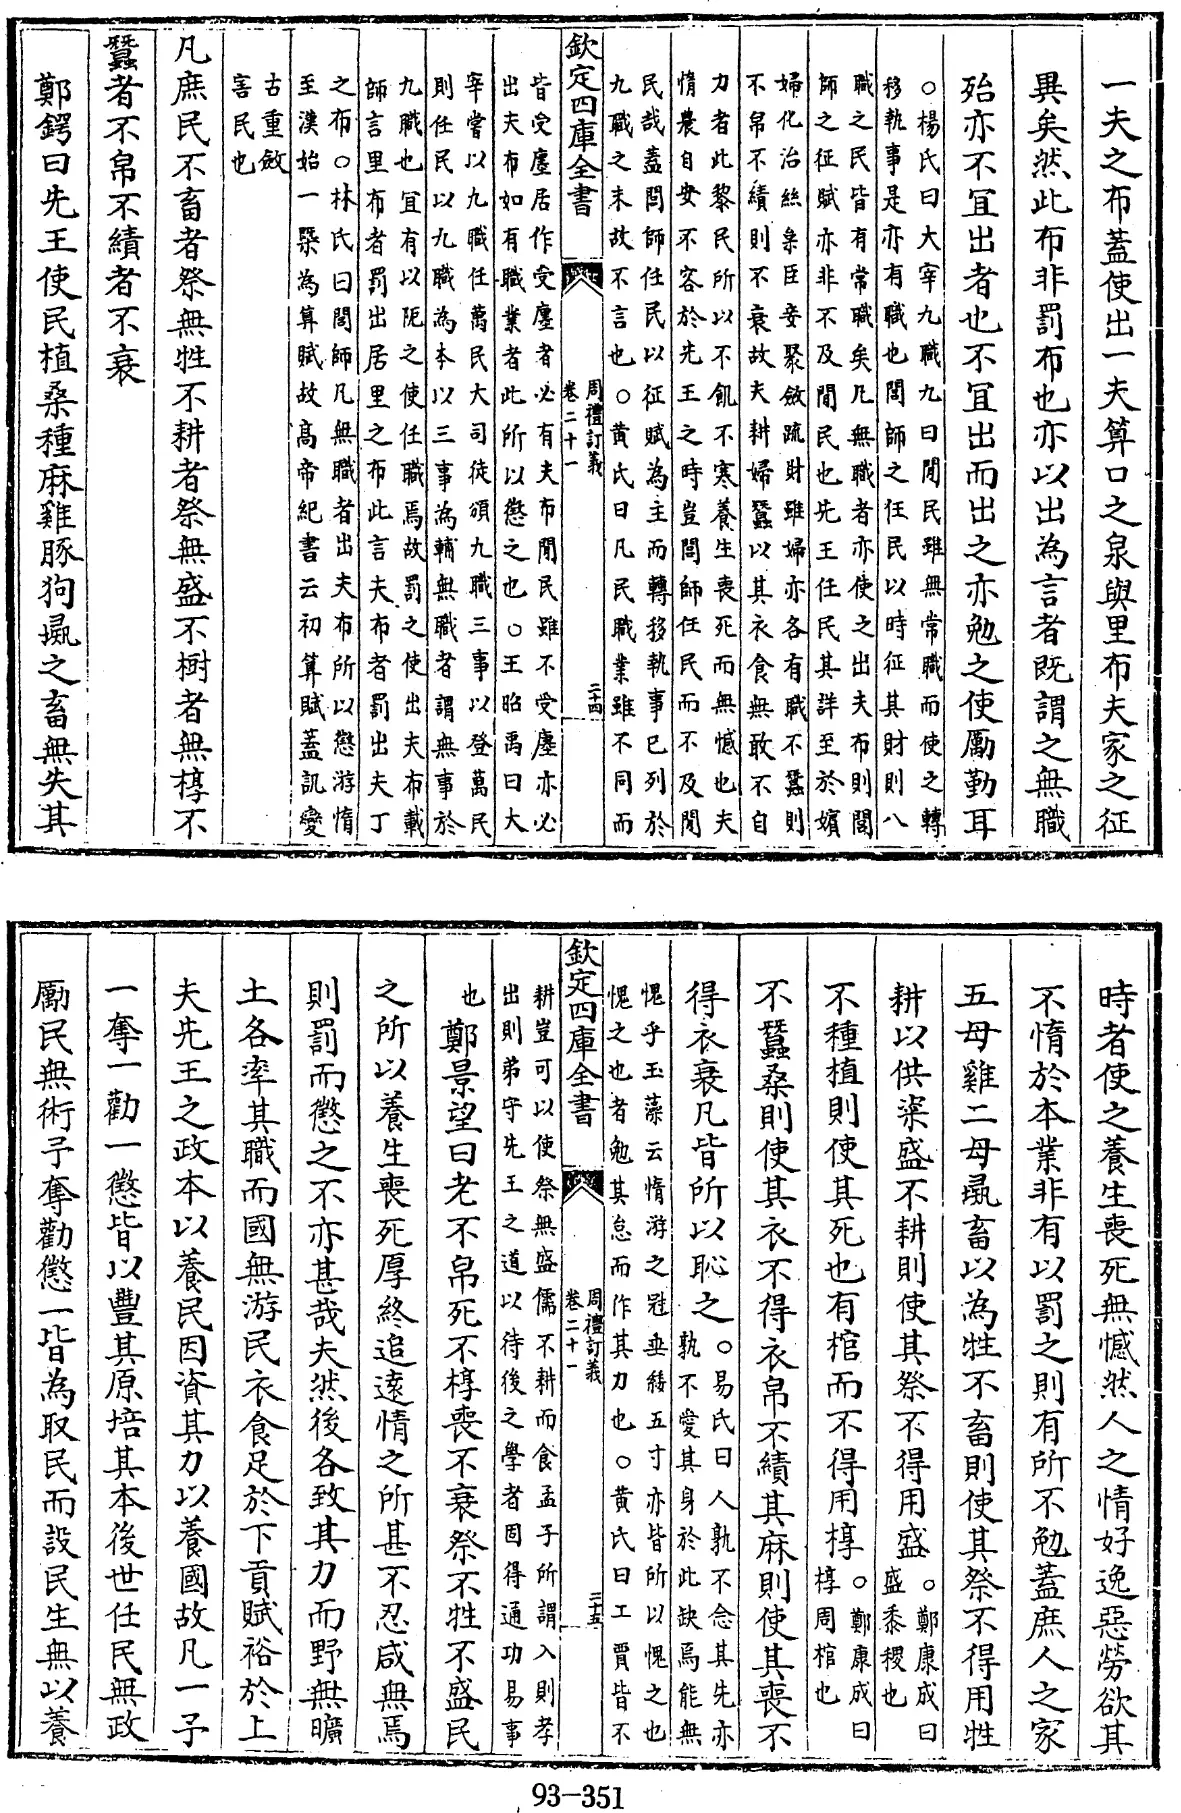 一夫之布蓋使出一夫算口之泉與里布夫家之征
異矣然此布非罰布也亦以出為言者既謂之無職
殆亦不宜出者也不宜出而出之亦勉之使厲勤耳
○楊氏曰大宰九職九曰閒民雖無常職而使之轉
移執事是亦有職也閭師之任民以時征其財則八
職之民皆有常職矣凡無職者亦使之出夫布則閭
師之征賦亦非不及閒民也先王任民其詳至於嬪
婦化治絲枲臣妾聚斂疏財雖婦亦各有職不蠶則
不帛不績則不衰故夫耕婦蠶以其衣食無敢不自
力者此黎民所以不飢不寒養生喪死而無憾也夫
惰農自安不容於先王之時豈閭師任民而不及閒
民哉蓋閭師任民以征賦為主而轉移執事已列於
九職之末故不言也○黄氏曰凡民職業雖不同而
欽定四庫全書
周禮訂義
卷二十一
二十四
皆受廛居作受廛者必有夫布閒民雖不受廛亦必
出夫布如有職業者此所以懲之也○王昭禹曰大
宰嘗以九職任萬民大司徒頒九職三事以登萬民
則任民以九職為本以三事為輔無職者謂無事於
九職也宜有以阨之使任職焉故罰之使出夫布載
師言里布者罰出居里之布此言夫布者罰出夫丁
之布○林氏曰閭師凡無職者出夫布所以懲游惰
至漢始一槩為算賦故髙帝紀書云初算賦蓋訊變
古重斂
害民也
凡庶民不畜者祭無牲不耕者祭無盛不樹者無椁不
蠶者不帛不績者不衰
鄭鍔曰先王使民植桑種麻雞豚狗彘之畜無失其
時者使之養生喪死無憾然人之情好逸惡勞欲其
不惰於本業非有以罰之則有所不勉蓋庶人之家
五母雞二母彘畜以為牲不畜則使其祭不得用牲
耕以供粢盛不耕則使其祭不得用盛○鄭康成曰
盛黍稷也
不種植則使其死也有棺而不得用椁○鄭康成曰
椁周棺也
不蠶桑則使其衣不得衣帛不績其麻則使其喪不
得衣衰凡皆所以恥之○易氏曰人孰不念其先亦
孰不愛其身於此缺焉能無
愧乎玉藻云惰游之冠垂緌五寸亦皆所以愧之也
愧之也者勉其怠而作其力也○黄氏曰工賈皆不
欽定四庫全書
周禮訂義
卷二十一
二十五
耕豈可以使祭無盛儒不耕而食孟子所謂入則孝
出則弟守先王之道以待後之學者固得通功易事
也
鄭景望曰老不帛死不椁喪不衰祭不牲不盛民
之所以養生喪死厚終追遠情之所甚不忍咸無焉
則罰而懲之不亦甚哉夫然後各致其力而野無曠
土各率其職而國無游民衣食足於下貢賦裕於上
夫先王之政本以養民因資其力以養國故凡一予
一奪一勸一懲皆以豐其原培其本後世任民無政
勵民無術予奪勸懲一皆為取民而設民生無以養
93-351